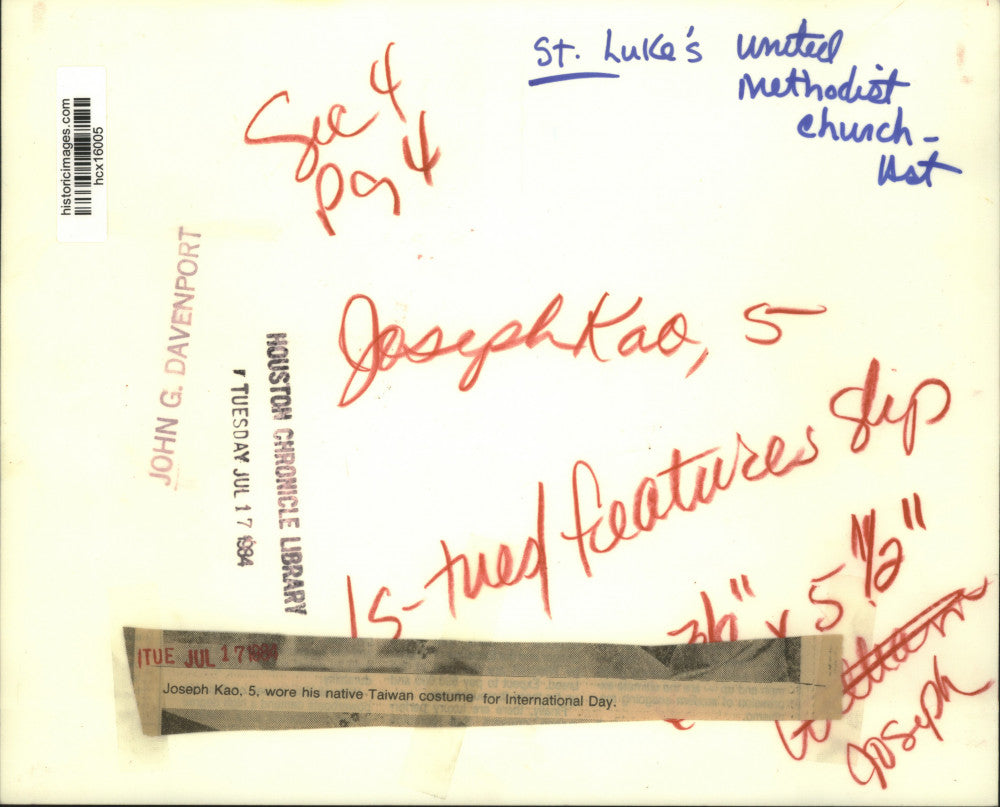 St. Luke's United
Methodist
Church -
Sec 4
pg 4
historicimages.com
hcx16005
JOHN G. DAVENPORT
HOUSTON CHRONICLE LIBRARY
TUESDAY JUL 17 1984
Joseph Kao, 5
tues/features
x 5 1/2"
Joseph
TUE JUL 17 1984
Joseph Kao, 5, wore his native Taiwan costume for International Day.